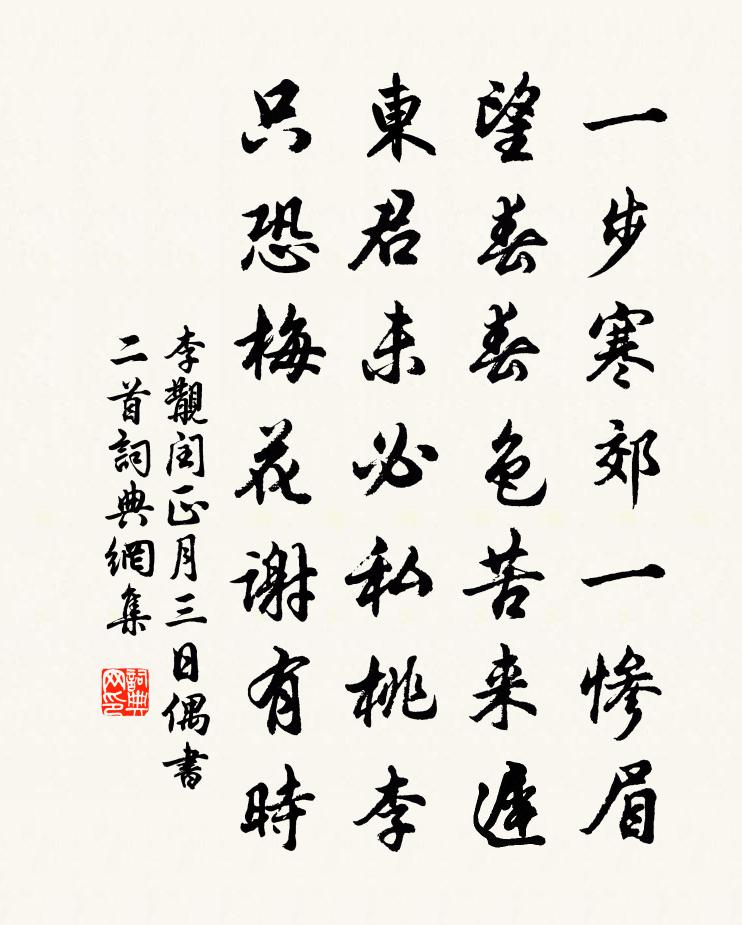 一步寒郊一慘眉
望春春色苦来遲
東君未必私桃李
只恐梅花謝有時
李覯閏正月三日偶書
二首詞典網集
詞典网印